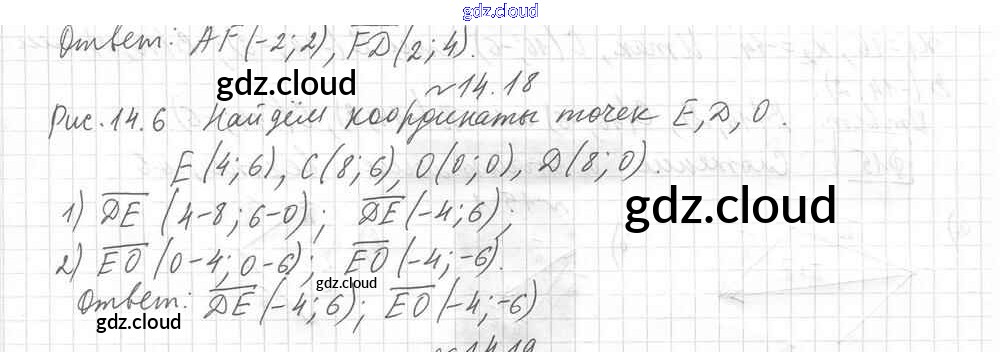 gdz.cloud
Ответ: AF(-2;2), FD(2;4).
gdz.cloud
№14.18
Рис. 14.6 Найдём координаты точек E, D, O.
E(4;6), C(8;6), O(0;0), D(8;0)
1) DE (4-8; 6-0); DE(-4; 6);
gdz.cloud
2) EO (0-4; 0-6); EO(-4;-6).
gdz.cloud
Ответ: DE(-4; 6); EO(-4;-6)
gdz.cloud
№14.19